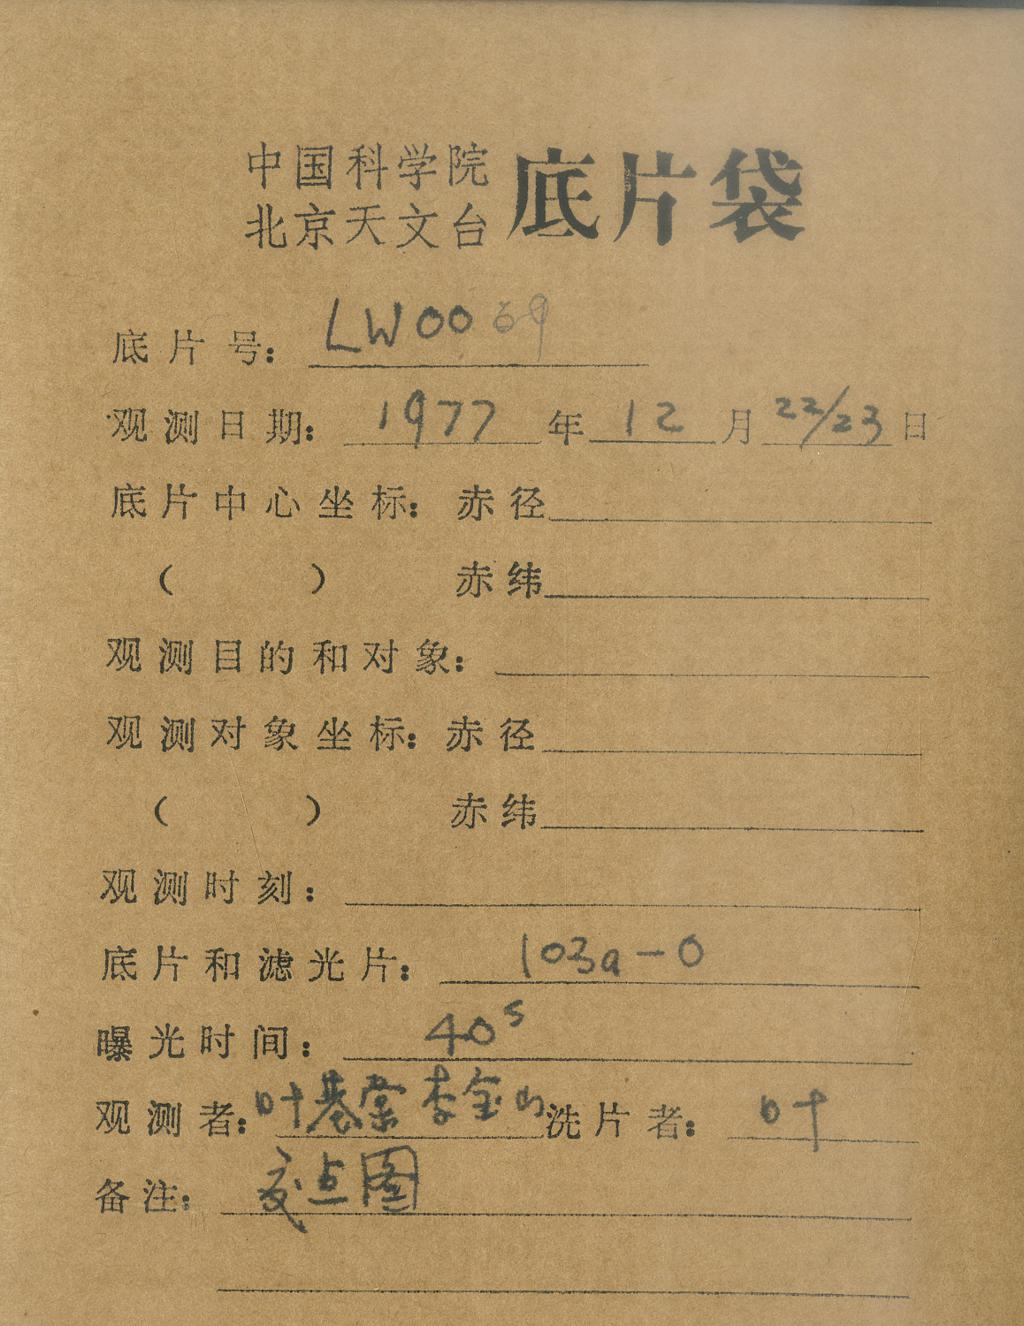 中国科学院
北京天文台 底片袋
底片号: LW0069
观测日期: 1977年12月22/23日
底片中心坐标: 赤径
( ) 赤纬
观测目的和对象:
观测对象坐标: 赤径
( ) 赤纬
观测时刻:
底片和滤光片: 103a-O
曝光时间: 40s
观测者: 叶基棠 李金山 洗片者: 叶
备注: 交点图